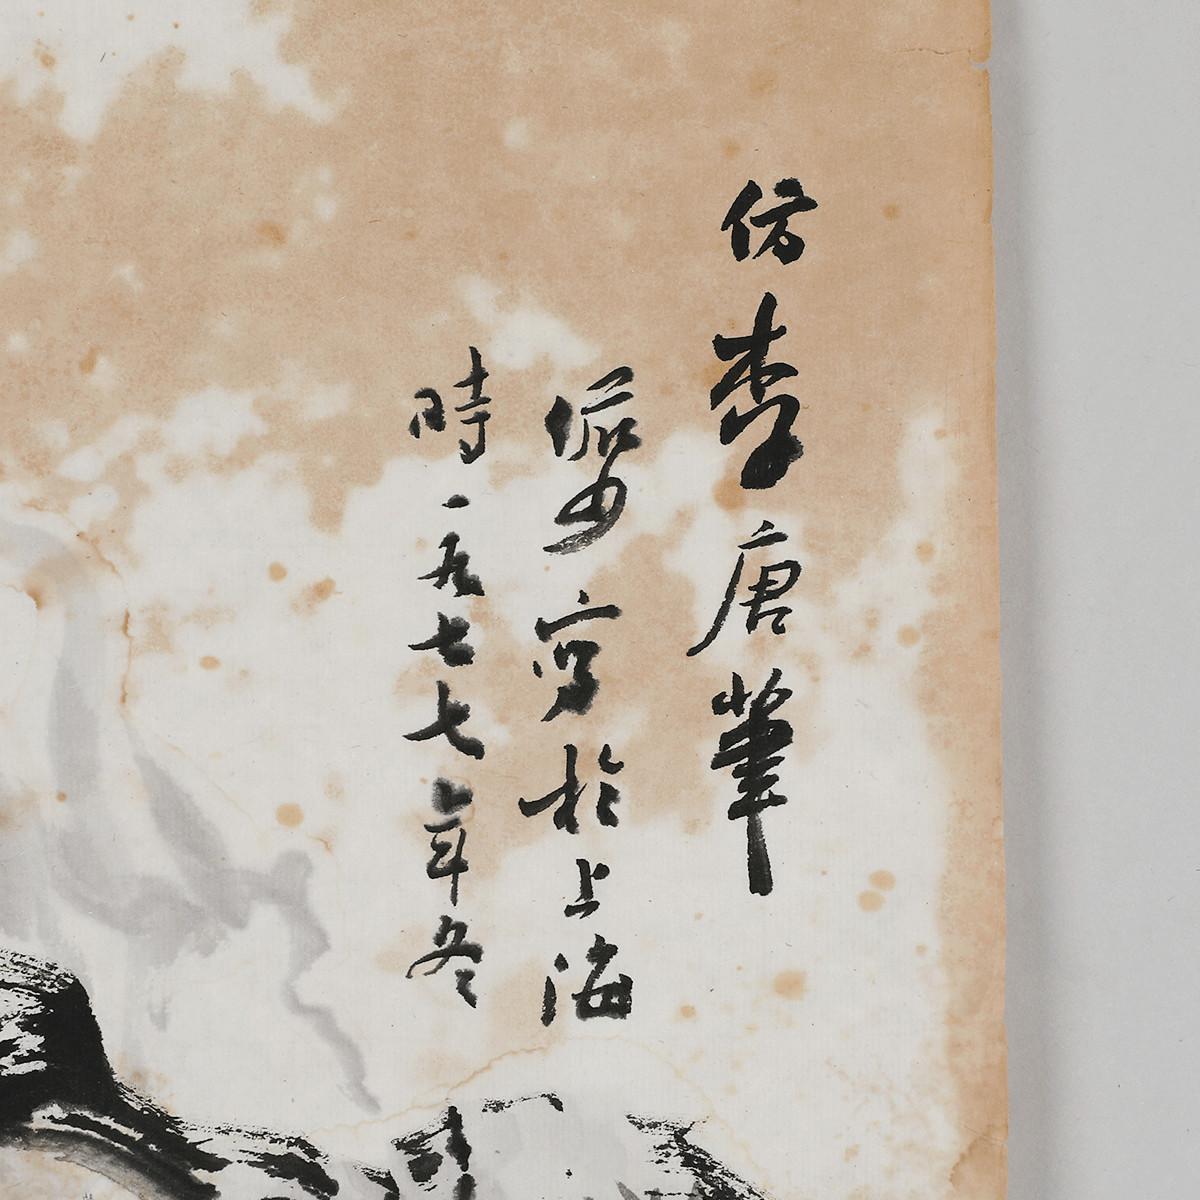 仿李唐筆
儼少寫於上海
時一九七七年冬